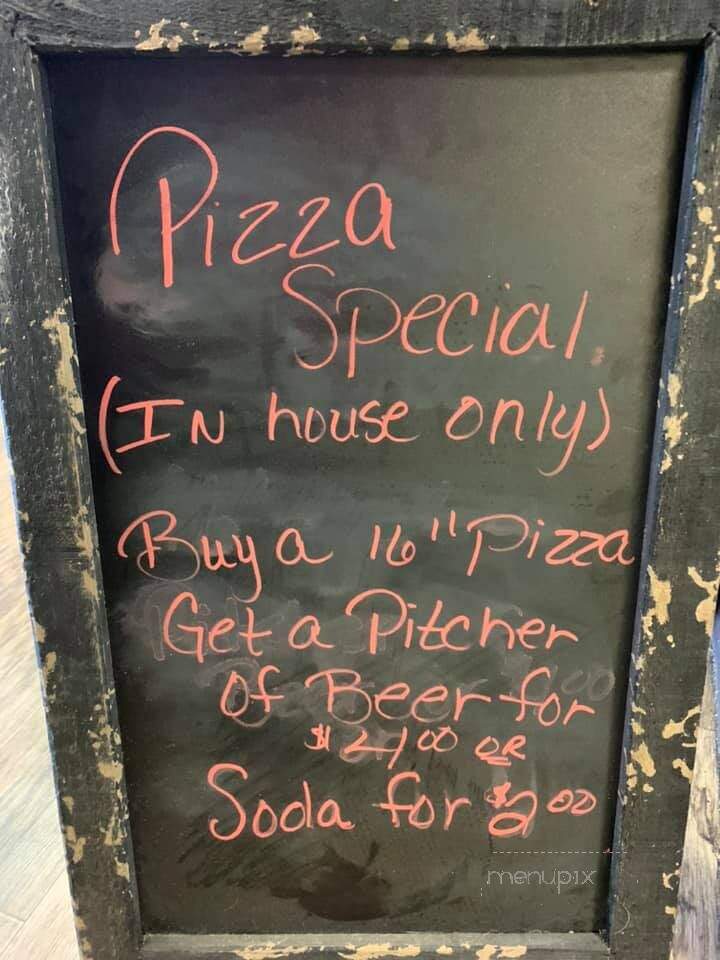 Pizza
Special
(IN house only)
Buy a 16" Pizza
Get a Pitcher
of Beer for
$4.00 OR
Soda for $2.00
menupix